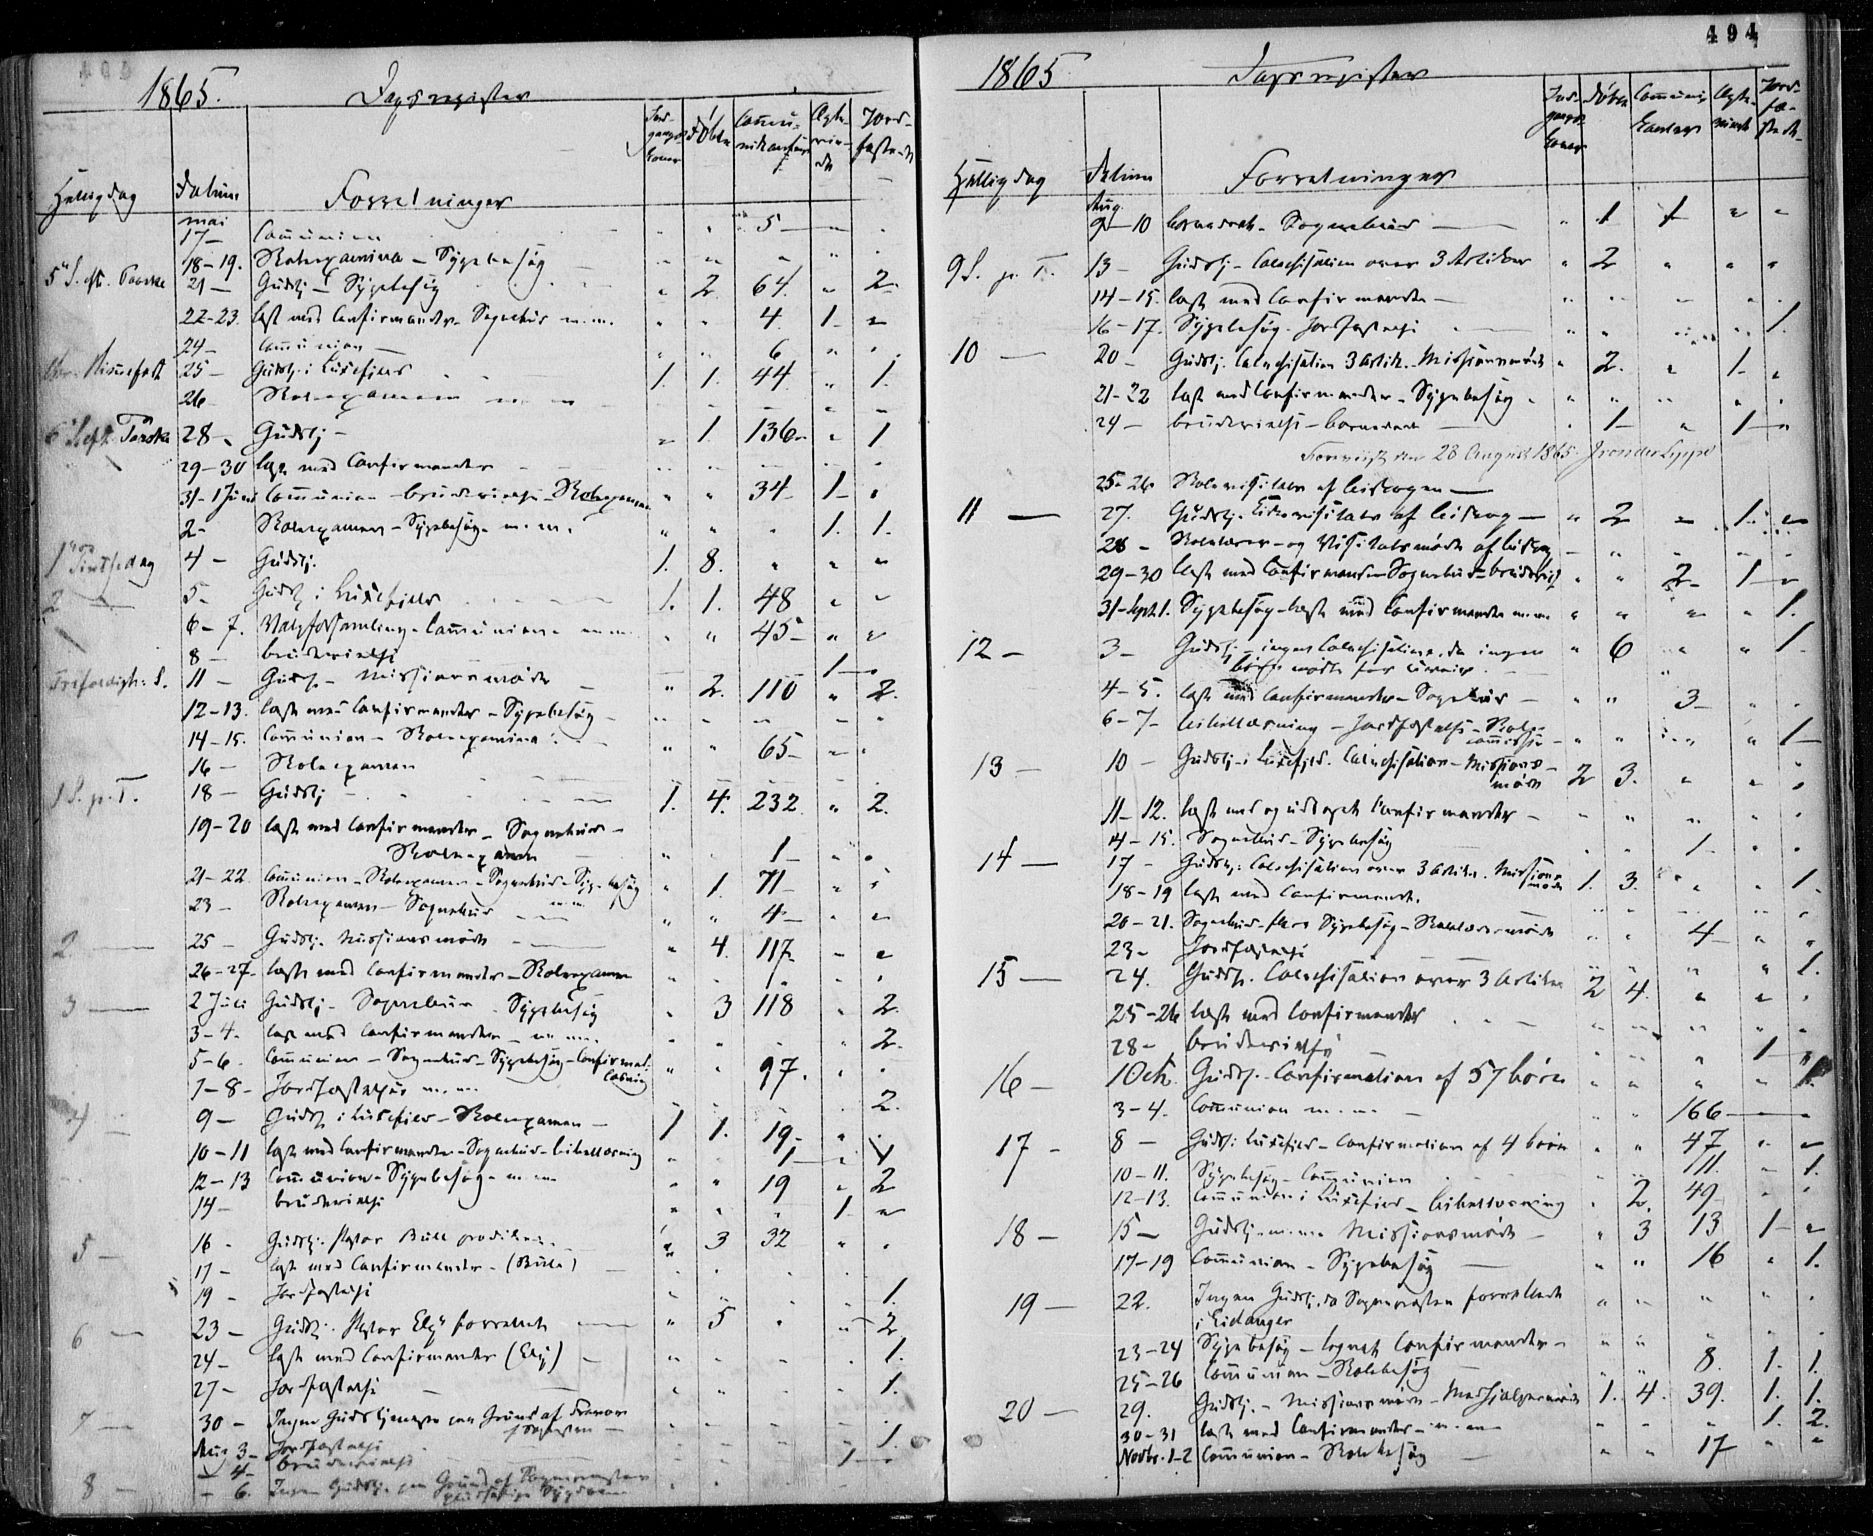 494
1865. Dagsregister
Helligdag Datum Forretninger Ind-gangs Koner Døbte Communikanter Ægte-viede Jord-fæstede
Mai
17 – Communion " " 5 – " "
18-19. Skoleexamina – Sygebesøg – " " " " "
5 S. eft. Paaske 21 – Gudstj – Sygebesøg " 2 64. " 2
22-23. læst med Confirmander – Sognebud m.m. " " 4. 1 – "
24 – Communion " " 6 " "
25 – Gudstj. i Luxefjeld 1. 1. 44 " 1.
26 Skoleexamen m m
28 – Gudstj – " 1. 136 – " 1
29-30 læst med Confirmander
31-1 Juni Communion – brudevielse – Skoleexamen " " 34 – 1 – "
2 – Skoleexamen – Sygebesøg – m.m. " " " 1. 1.
1 Pintsedag 4 – Gudstj. 1. 8. " " "
2 – 5 – Gudstj i Luxefjeld 1. 1. 48 " "
6-7. Valgforsamling – Communion – m.m. " " 45 – " "
8 – brudevielse 1 –
Trifoldigh. S. 11 – Gudstj – Missionsmøde " 2. 110 " 2.
12-13. læst med Confirmander – Sygebesøg –
14-15. Communion – Skoleexamina " " 65 – " "
16 – Skoleexamen
1 S. p. T. 18 – Gudstj 1. 4. 232 " 2.
19-20 læst med Confirmander – Sognebud –
Skoleexamen " " 1 – " "
21-22. Communion – Skoleexamen – Sognebud – Sygebesøg m.m. " 1. 71 – " "
23 – Skoleexamen – Sognebud " " 4 – " "
2. – 25 – Gudstj. Missionsmøde – " 4. 117 – " "
26-27 – læst med Confirmander – Skoleexamen
3 – 2 Juli Gudstj – Sognebud – Sygebesøg " 3 118 " 2.
3-4. læst med Confirmander – m.m. 2.
5-6. Communion – Sognebud – Sygebesøg – Confirmat. læsning " " 97. " "
7-8 – Jordfæstelse m.m. 2.
4 – 9 – Gudstj i Luxefjeld – Skoleexamen – 1 1. 19 – " "
10-11 læst med Confirmander – Sognebud – bibellæsning " " 1 – " 1
12-13 Communion – Sygebesøg – m.m. " " 19 " 2
14 – brudevielse " " " 1 "
5 – 16 – Gudstj. Pastor Bull prædikede " 3 32 " "
17 – læst med Confirmander – (Bull)
19 – Jordfæstelse 1.
6 – 23 – Gudstj. Pastor forrettede " 5 " " 2
24 – læst med Confirmander 1.
27 – Jordfæstelse 1.
7 – 30 – Ingen Gudstjeneste paa Grund af
Aug 3 – Jordfæstelse 1.
– 4 – brudevielse 1 –
8 – – 6. Ingen Gudstj. paa Grund af Sognepræstens Sygdom
1865 Dagsregister
Helligdag Datum Forretninger Ind-gangs Koner Døbte Communikanter Ægte-viede Jord-fæstede
Aug.
9-10 – Sognebud " 1 1 " "
9 S. p. T. 13 – Gudstj – Catechisation over 3 Artikel " 2 " " "
14-15. læst med Confirmander –
16-17. Sygebesøg – Jordfæstelse 1.
10 – 20 – Gudstj. Catechisation 3 Artik. Missionsmøde " 2. " 1 – "
21-22 læst med Confirmander – Sygebesøg –
24 – brudevielse – " 1 – " 1 – "
28 August 1865.
25-26 Skolevisitats af biskopen –
11 – 27. Gudstj. Kirkevisitats af biskop – " 2 " 1. "
28 – Skolelærer- og Visitatsmøde af biskop
29-30 læst med Confirmander – Sognebud – brudeviels " " 2 – 1 – "
31-Sept 1. Sygebesøg – læst med Confirmander m.m. " " " " 1.
12 – 3 – Gudstj – ingen Catechisation, da ingen " 6 " " 1.
børn mødte for
4-5. læst med Confirmander – Sognebud – " " 3 – " "
6-7 – bibellæsning – Jordfæstelse – Skole-commission " " " " 1 –
13 – 10 – Gudstj – i Luxefjeld. Catechisation – Missions-møde 2 3. " " "
11-12. læst med og udtaget Confirmander –
14-15. Sognebud – Sygebesøg 1 –
14 – 17 – Gudstj. Catechisation over 3 Artikel. Missionsmøde 1. 3. " " 1.
18-19 læst med Confirmand.
20-21. Sognebud – Sygebesøg – Skolelærermøde " " 4 – " "
23 – Jordfæstelse
15 – 24. Gudstj. Catechisation over 3 Artikel 2 4. " " 1.
25-26 læst med Confirmander
28 – brudevielse 1 –
16 – 1 Oct. Gudstj. – Confirmation af 57 børn " " " " 1.
3-4. Communion m.m. – 166 –
17 – 8 – Gudstj. i Luxefjeld – Confirmation af 4 børn " " 47 " "
10-11. Sygebesøg – Communion 111. " 1.
12-13. Communion i Luxefjeld – bibellæsning " 2. 49 " "
18 – 15 – Gudstj – m.m. Missionsmøde – " 3 13 1 – "
17-19 Communion – Sygebesøg – " " 16 " 1.
19 – 22. Ingen Gudstj. da Sognepræsten forrettede
i Eidanger
23-24 Sygebesøg – Confirmander –
25-26 Communion – Skolebesøg – 8. 1. 1.
20 – 29. Gudstj. – Missionsmøde – 1. 4. 39. 1. 1.
30-31 læst med Confirmander – m.m. 1. 2.
Novbr. 1-2 Communion – Skolebesøg – " " 17 " "